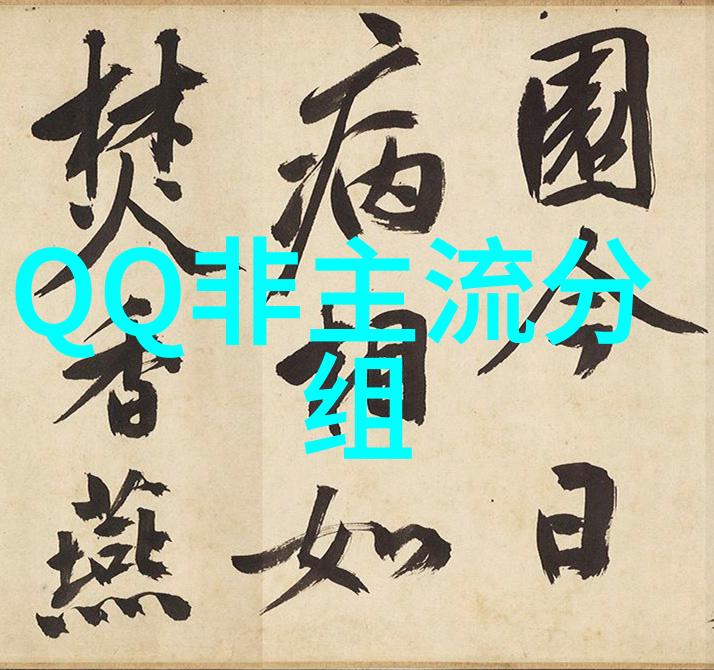 QQ非主流分
组
園今日
病相如
焚香燕